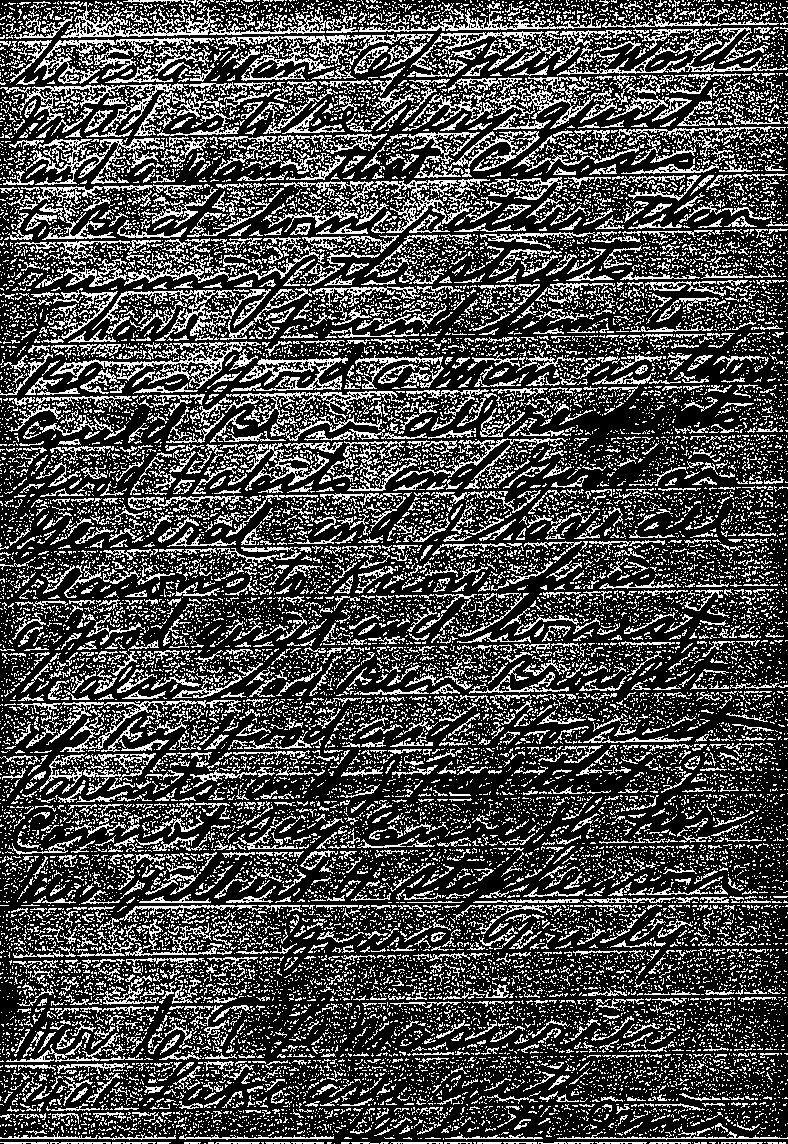 he is a man of few words
noted as to Be very quiet
and a man that Chooses
to Be at home rather than
running the streets
I have Found him to
Be as Good a man as thee
Could Be in all respects
Good Habits and Good in
General and I have all
reasons to Know he is
a Good quiet and honest
he also had Been Brought
up By Good and Honest
Parents and I that I
Cannot Say Enough for
Mr Gilbert H Stephenson
yours Truely
Mr C T
1401 Lake ave south
Duluth Minn